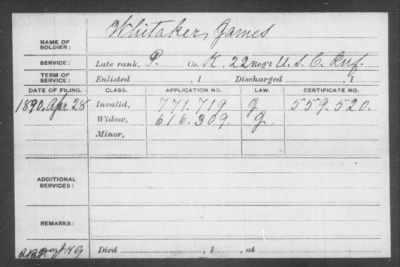 NAME OF SOLDIER: Whitaker, James
SERVICE: Late rank, P. Co. K, 22 Reg't U. S. C. Inf.
TERM OF SERVICE: Enlisted , 1 Discharged , 1
DATE OF FILING. CLASS. APPLICATION NO. LAW. CERTIFICATE NO.
1890, Apr 28 Invalid, 771.719 J 559.520.
Widow, 616.309. J.
Minor,
ADDITIONAL SERVICES:
REMARKS:
Died , 1 , at